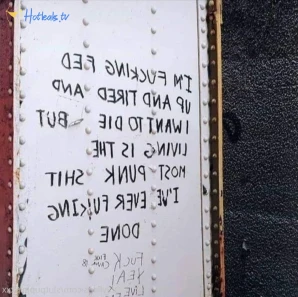 Hotleaks.tv
I'M FUCKING FED
UP AND TIRED AND
I WANT TO DIE BUT
LIVING IS THE
MOST PUNK SHIT
I'VE EVER FUKING
DONE
FUCK
YEA!